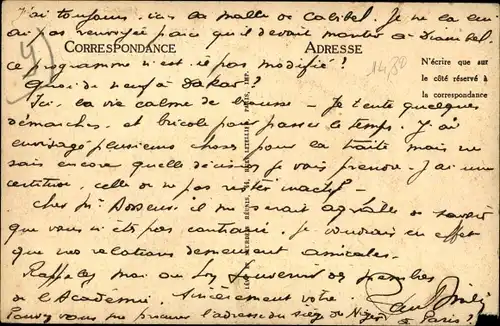 J'ai toujours ici la malle de Cabibel. Je ne la lui
ai pas renvoyée parce qu'il devait monter à Diambel
CORRESPONDANCE ADRESSE
ce programme n'est-il pas modifié ?
N'écrire que sur
le côté réservé à
la correspondance
Quoi de neuf à Dakar ?
Ici, la vie calme de brousse — Je tente quelques
démarches, et bricole pour passer le temps. J'ai
envisagé plusieurs choses pour la traite mais ne
sais encore quelle décision je vais prendre. J'ai une
certitude, celle de ne pas rester inactif —
Cher Mr il me serait agréable de savoir
que vous n'êtes pas contrarié, je voudrais en effet
que nos relations demeurent amicales.
Rappelez moi au bon souvenir des membres
de l'Académie. Sincèrement votre
Pouvez vous me procurer l'adresse du siège de Niger
à Paris ?